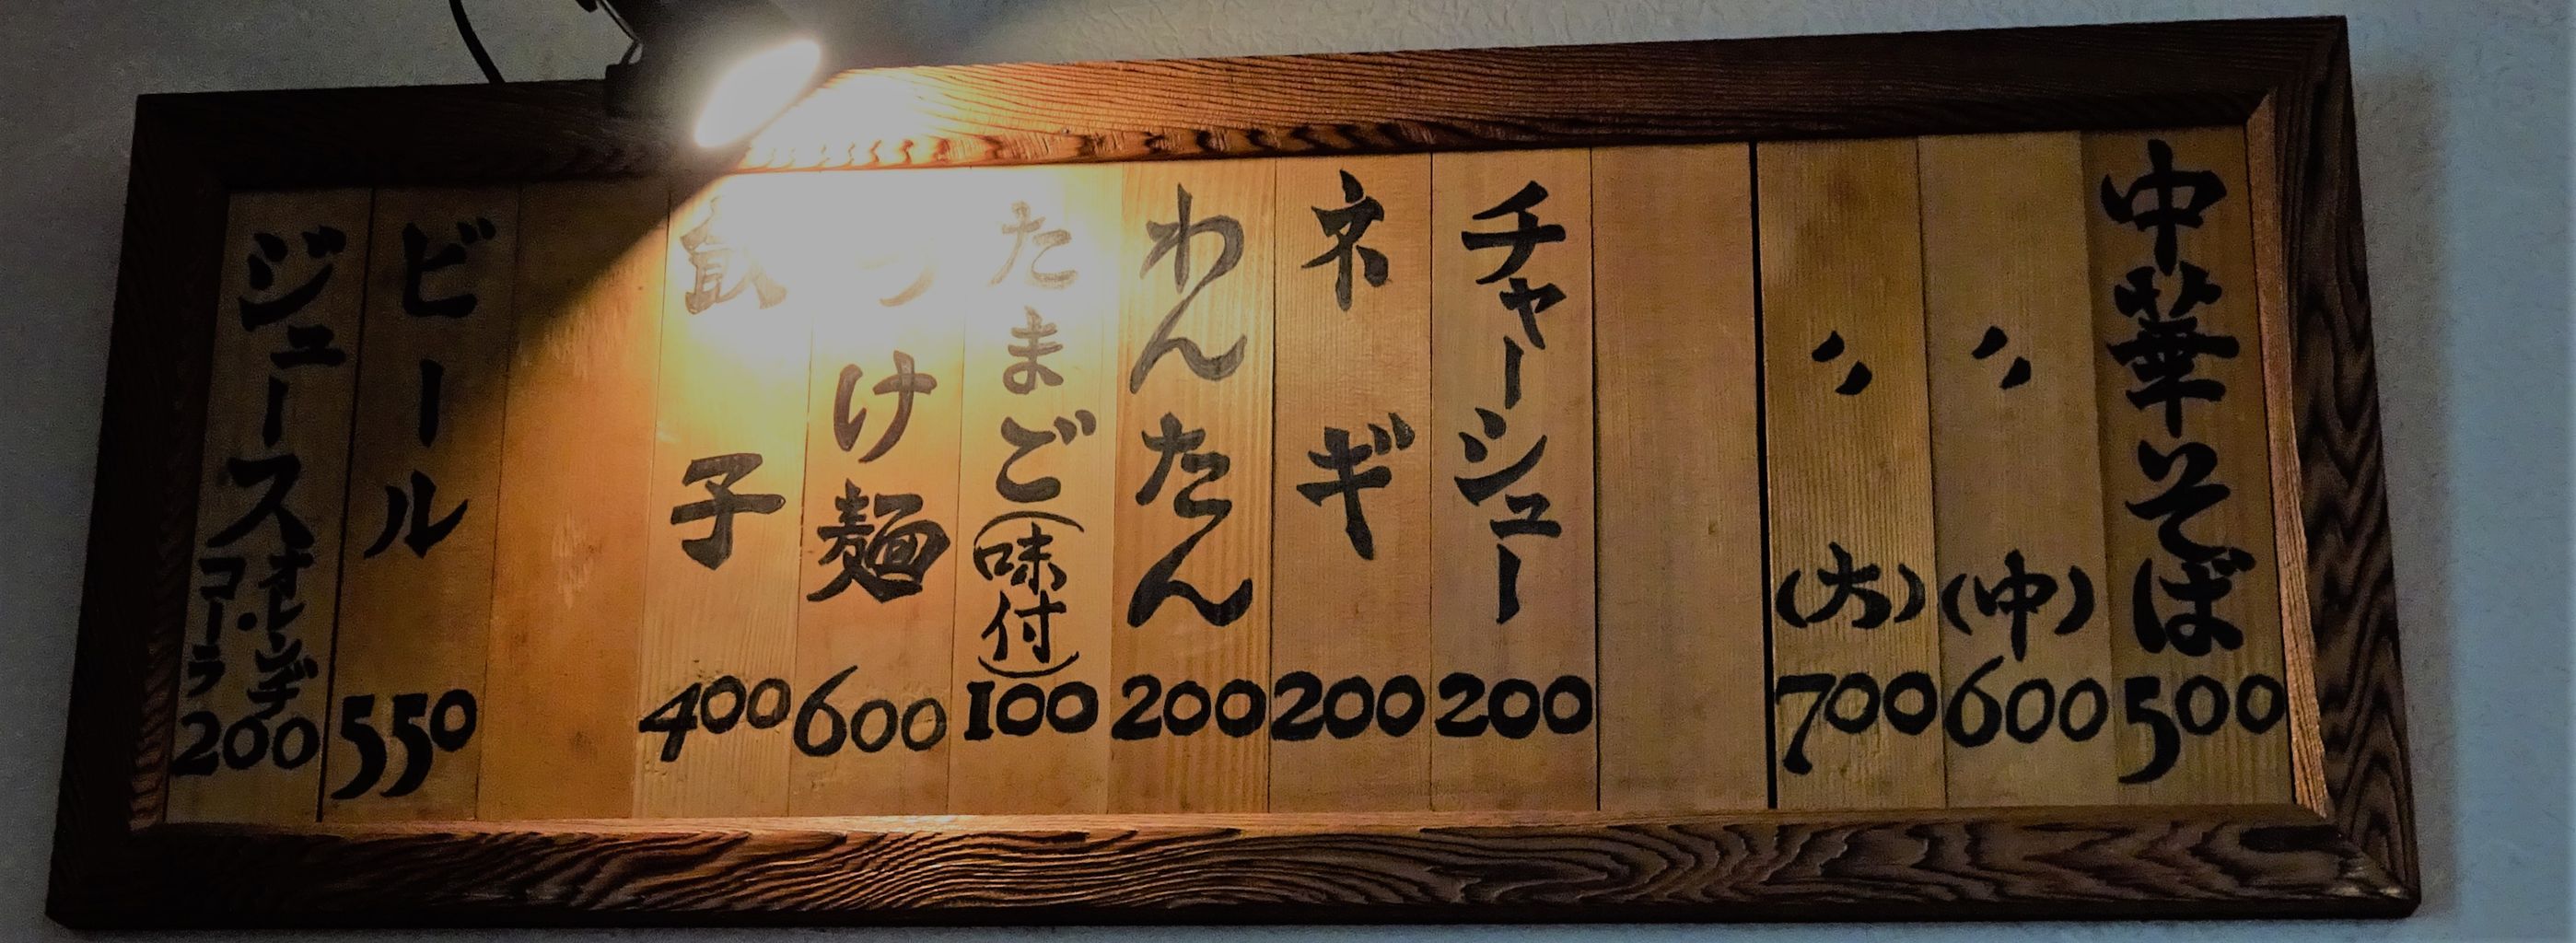 中華そば 500
〃 (中) 600
〃 (大) 700
チャーシュー 200
ネギ 200
わんたん 200
たまご(味付) 100
つけ麺 600
餃子 400
ビール 550
ジュース オレンヂ・コーラ 200